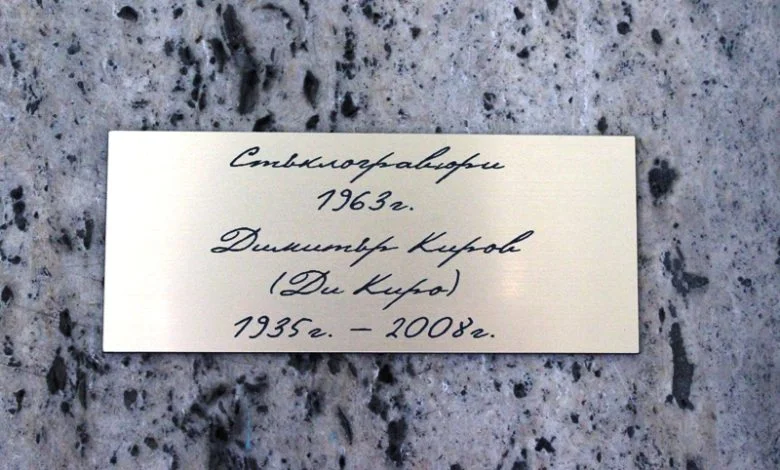 Стъклогравюри
1963г.
Димитър Киров
(Ди Киро)
1935г. – 2008г.